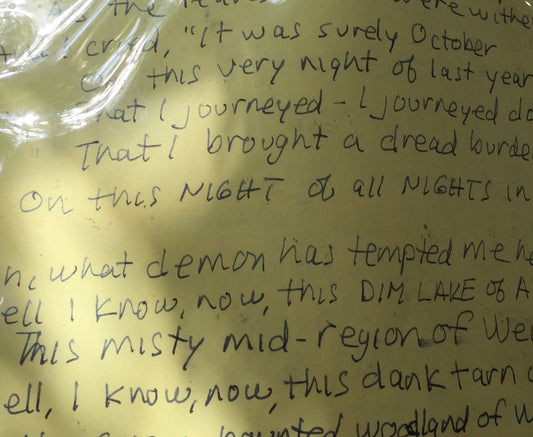 As the withe
cried, "It was surely October
this very night of last year
That I journeyed - I journeyed do
That I brought a dread burde
On this NIGHT of all NIGHTS in
h, what demon has tempted me he
ell I know, now, this DIM LAKE of A
This misty mid-region of We
ell, I know, now, this dank tarn o
haunted woodland of W